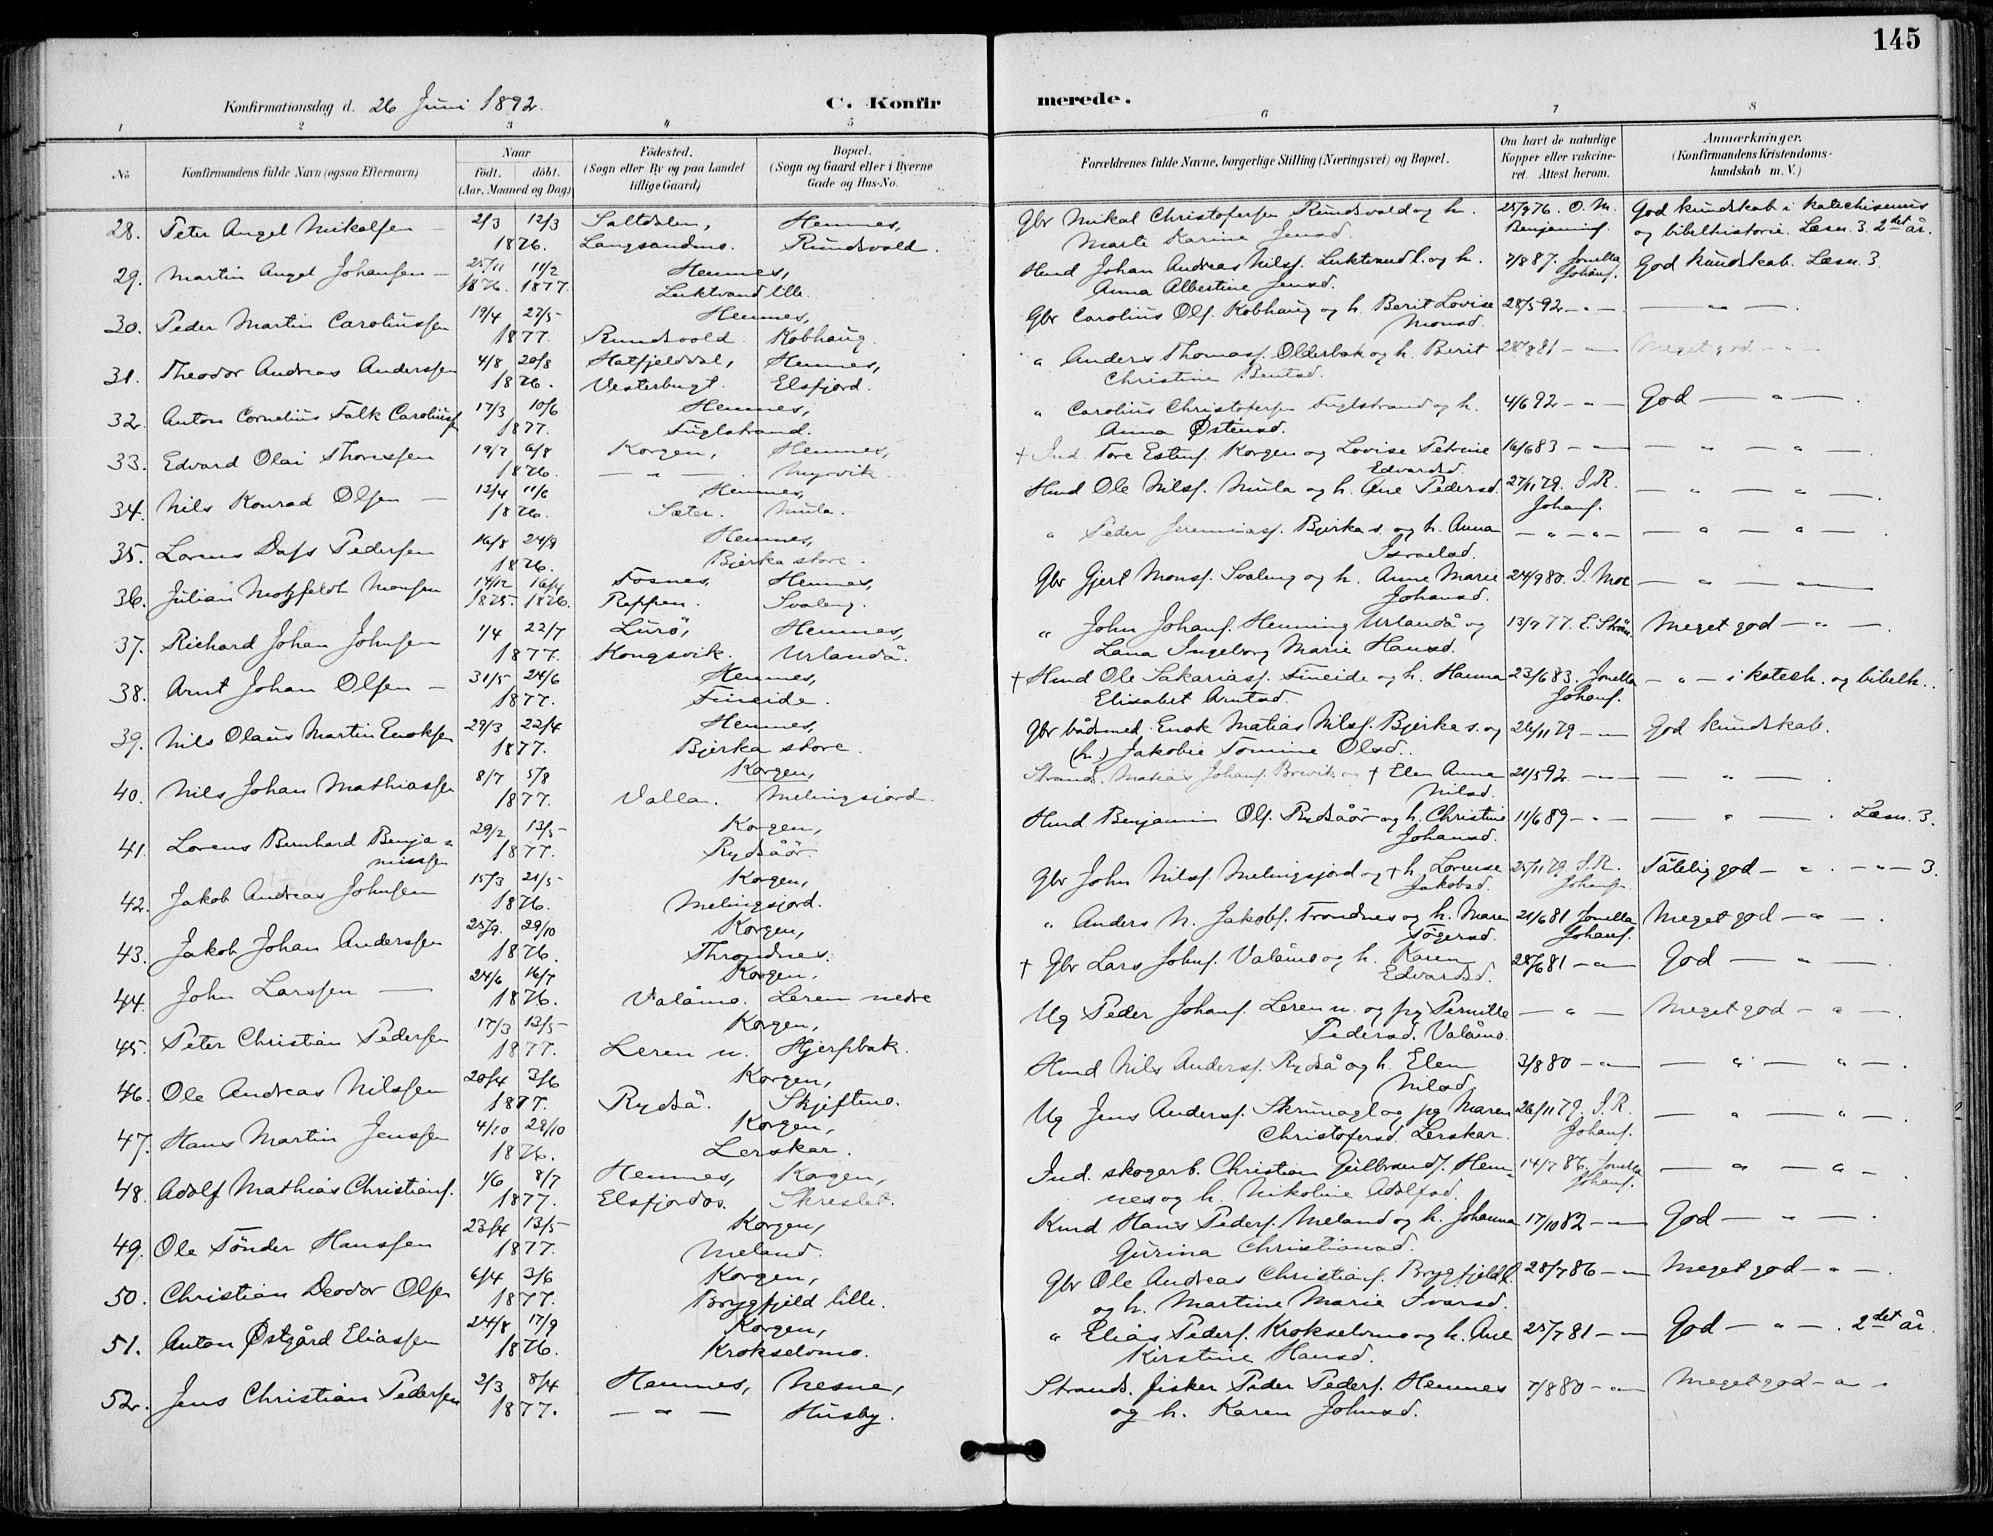 145
Konfirmationsdag d. 26 Juni 1892.
C. Konfir
merede.
1 2 3 4 5 6 7 8
No
Konfirmandens fulde Navn (ogsaa Efternavn)
Naar
født. døbt.
(Aar, Maaned og Dag)
Fødested.
(Sogn eller By og paa Landet
tillige Gaard)
Bopæl.
(Sogn og Gaard eller i Byerne
Gade og Hus-No.
Forældrenes fulde Navne, borgerlige Stilling (Næringsvei) og Bopæl.
Om havt de naturlige
Kopper eller vakcine-
ret. Attest herom.
Anmærkninger.
(Konfirmandens Kristendoms-
kundskab m. V.)
28. Peter Angel Mikalsen — 2/3 12/3 Saltdalen, Hemnes, Gbr Mikal Christofersen Rundvold og h. 25/9 76. O. M. God kundskab i katechismus
1876. Langsandmo. Rundsvold. Marte Karine Jensd. Benjaminsf. og bibelhistorie. Læsn. 3. 2det år.
29. Martin Angel Johansen — 25/11 11/2 Hemnes, Husmd Johan Andreas Nilsf. Luktvand l. og h. 7/8 87. Jonetta God kundskab. Læsn. 3.
1876. 1877. Luktvand lille. Anna Albertine Jensd. Johansf.
30. Peder Martin Caroliussen 19/4 27/5 Hemnes, Gbr Carolius Olf. Kobhaug og h. Berit Lovise 28/5 92 — " — — " — .
1877. Rundsvold. Kobhaug. Monsd.
31. Theodor Andreas Anderssen 4/8 20/8 Hatfjelddal, Hemnes, " Anders Thomasf. Olderbak og h. Berit 28/8 81 — " — Meget god — " —
1876. Vesterbugt. Elsfjord. Christine Bentsd.
32. Anton Cornelius Falk Caroliusf 17/3 10/6 Hemnes, " Carolius Christofersen Fuglstrand og h. 4/6 92 — " — God — " — .
1877. Fuglstrand. Anna Østensd.
33. Edvard Olai Thoressen 19/7 6/8 Korgen, Hemnes, † Ind. Tore Estensf. Korgen og Lovise Petrine 16/6 83 — " — — " — " — .
1876. — " — . Myrvik. Edvardsd.
34. Nils Konrad Olsen — 12/4 11/6 Hemnes, Hmd Ole Nilsf. Mula og h. Ane Pedersd. 27/11 79. J. R. — " — " — .
1876. Sæter. Mula. Johansf.
35. Lorens Dass Pedersen 16/8 24/9 Hemnes, " Peder Jeremiasf. Bjerka s. og h. Anna — " — " — — " — " — .
1876. Bjerka store. Israelsd.
36. Julian Motzfeldt Monsen 14/12 16/4 Fosnes, Hemnes, Gbr Gjert Monsf. Svaleng og h. Anne Marie 24/9 80. J. Moe — " — " —
1875. 1876. Reppen. Svaleng. Johansd.
37. Richard Johan Johnsen 1/4 22/7 Lurö, Hemnes, " John Johansf. Henning Urlandå og 13/7 77. E. Meget god — " — .
1877. Kongsvik. Urlandå. Lana Ingeborg Marie Hansd.
38. Arnt Johan Olsen — 31/5 24/6 Hemnes, † Hmd Ole Sakariasf. Fineide og h. Hanna 23/6 83. Jonetta — " — i katech. og bibelh.
1877. Fineide. Elisabet Arntsd. Johansf.
39. Nils Olaus Martin Enoksen 29/3 22/4 Hemnes, Gbr bådsmed. Enok Matias Nilsf. Bjerka s. og 26/11 79 — " — God kundskab.
1877. Bjerka store. (h.) Jakobie Tomine Olsd.
40. Nils Johan Mathiassen 8/7 5/8 Korgen, Strands. Matias Johansf. Brevik og † Elen Anne 21/5 92 — " — — " — .
1877. Valla. Melingsjord. Nilsd.
41. Lorens Bernhard Benja= 29/2 13/5 Korgen, Hmd Benjamin Olf. Rydsåör og h. Christine 11/6 89 — " — — " — . Læsn. 3.
minsen 1877. Rydsåör. Johansd.
42. Jakob Andreas Johnsen 15/3 21/5 Korgen, Gbr John Nilsf. Melingsjord og † h. Lorense 25/11 79 J. R. Tålelig god — " . — " — 3.
1876. Melingsjord. Jakobsd. Johansen
43. Jakob Johan Anderssen 25/9 29/10 Korgen, " Anders N. Jakobsf. Trondnes og h. Maren 21/6 81 Jonetta Meget god — " — .
1876. Throndnes. Tögersd. Johansf.
44. John Larssen — 24/6 16/7 Korgen, † Gbr Lars Johnsf. Valåmo og h. Karen 28/6 81 — " — God — " — .
1876. Valåmo. Leren nedre Edvardsd.
45. Peter Christian Pedersen 17/3 13/5 Korgen, Ug Peder Johansf. Leren n. og pg Pernille — " — Meget god — " — .
1877. Leren n. Hjerpbak. Pedersd. Valåmo.
46. Ole Andreas Nilssen 20/4 3/6 Korgen, Hmd Nils Andersf. Rydså og h. Elen 3/8 80 — " — — " — " — .
1877. Rydså. Skjeftmo. Nilsd.
47. Hans Martin Jenssen 4/10 29/10 Korgen, Ug Jens Andersf. og pg Maren 26/11 79. J. R. — " — " — .
1876. Lerskar. Christofersd. Lerskar. Johansf.
48. Adolf Mathias Christiansf. 1/6 8/7 Hemnes, Korgen, Ind. skogarb. Christian Gulbrandsf. Hem- 14/7 86. Jonetta — " — " — .
1877. Elsfjordos. Skreslet. nes og h. Nikoline Adolfsd. Johansf.
49. Ole Tönder Hanssen 23/4 13/5 Korgen, Kmd Hans Pedersf. Meland og h. Johanna 17/10 82 — " — God — " — .
1877. Meland. Gurina Christiansd.
50. Christian Deodor Olsen 6/4 3/6 Korgen, Gbr Ole Andreas Christiansf. Brygfjeld l. 28/7 86 — " — Meget god — " — .
1877. Brygfjeld lille. og h. Martine Marie Ivarsd.
51. Anton Östgård Eliassen 24/8 17/9 Korgen, " Elias Pedersf. Krokselvmo og h. Ane 25/7 81 — " — God — " — . 2det år.
1876. Krokselvmo. Kirstine Hansd.
52. Jens Christian Pedersen 2/3 8/4 Hemnes, Nesne, Strands. fisker Peder Pedersf. Hemnes 7/8 80 — " — Meget god — " —
1877. — " — Husby. og h. Karen Johnsd.